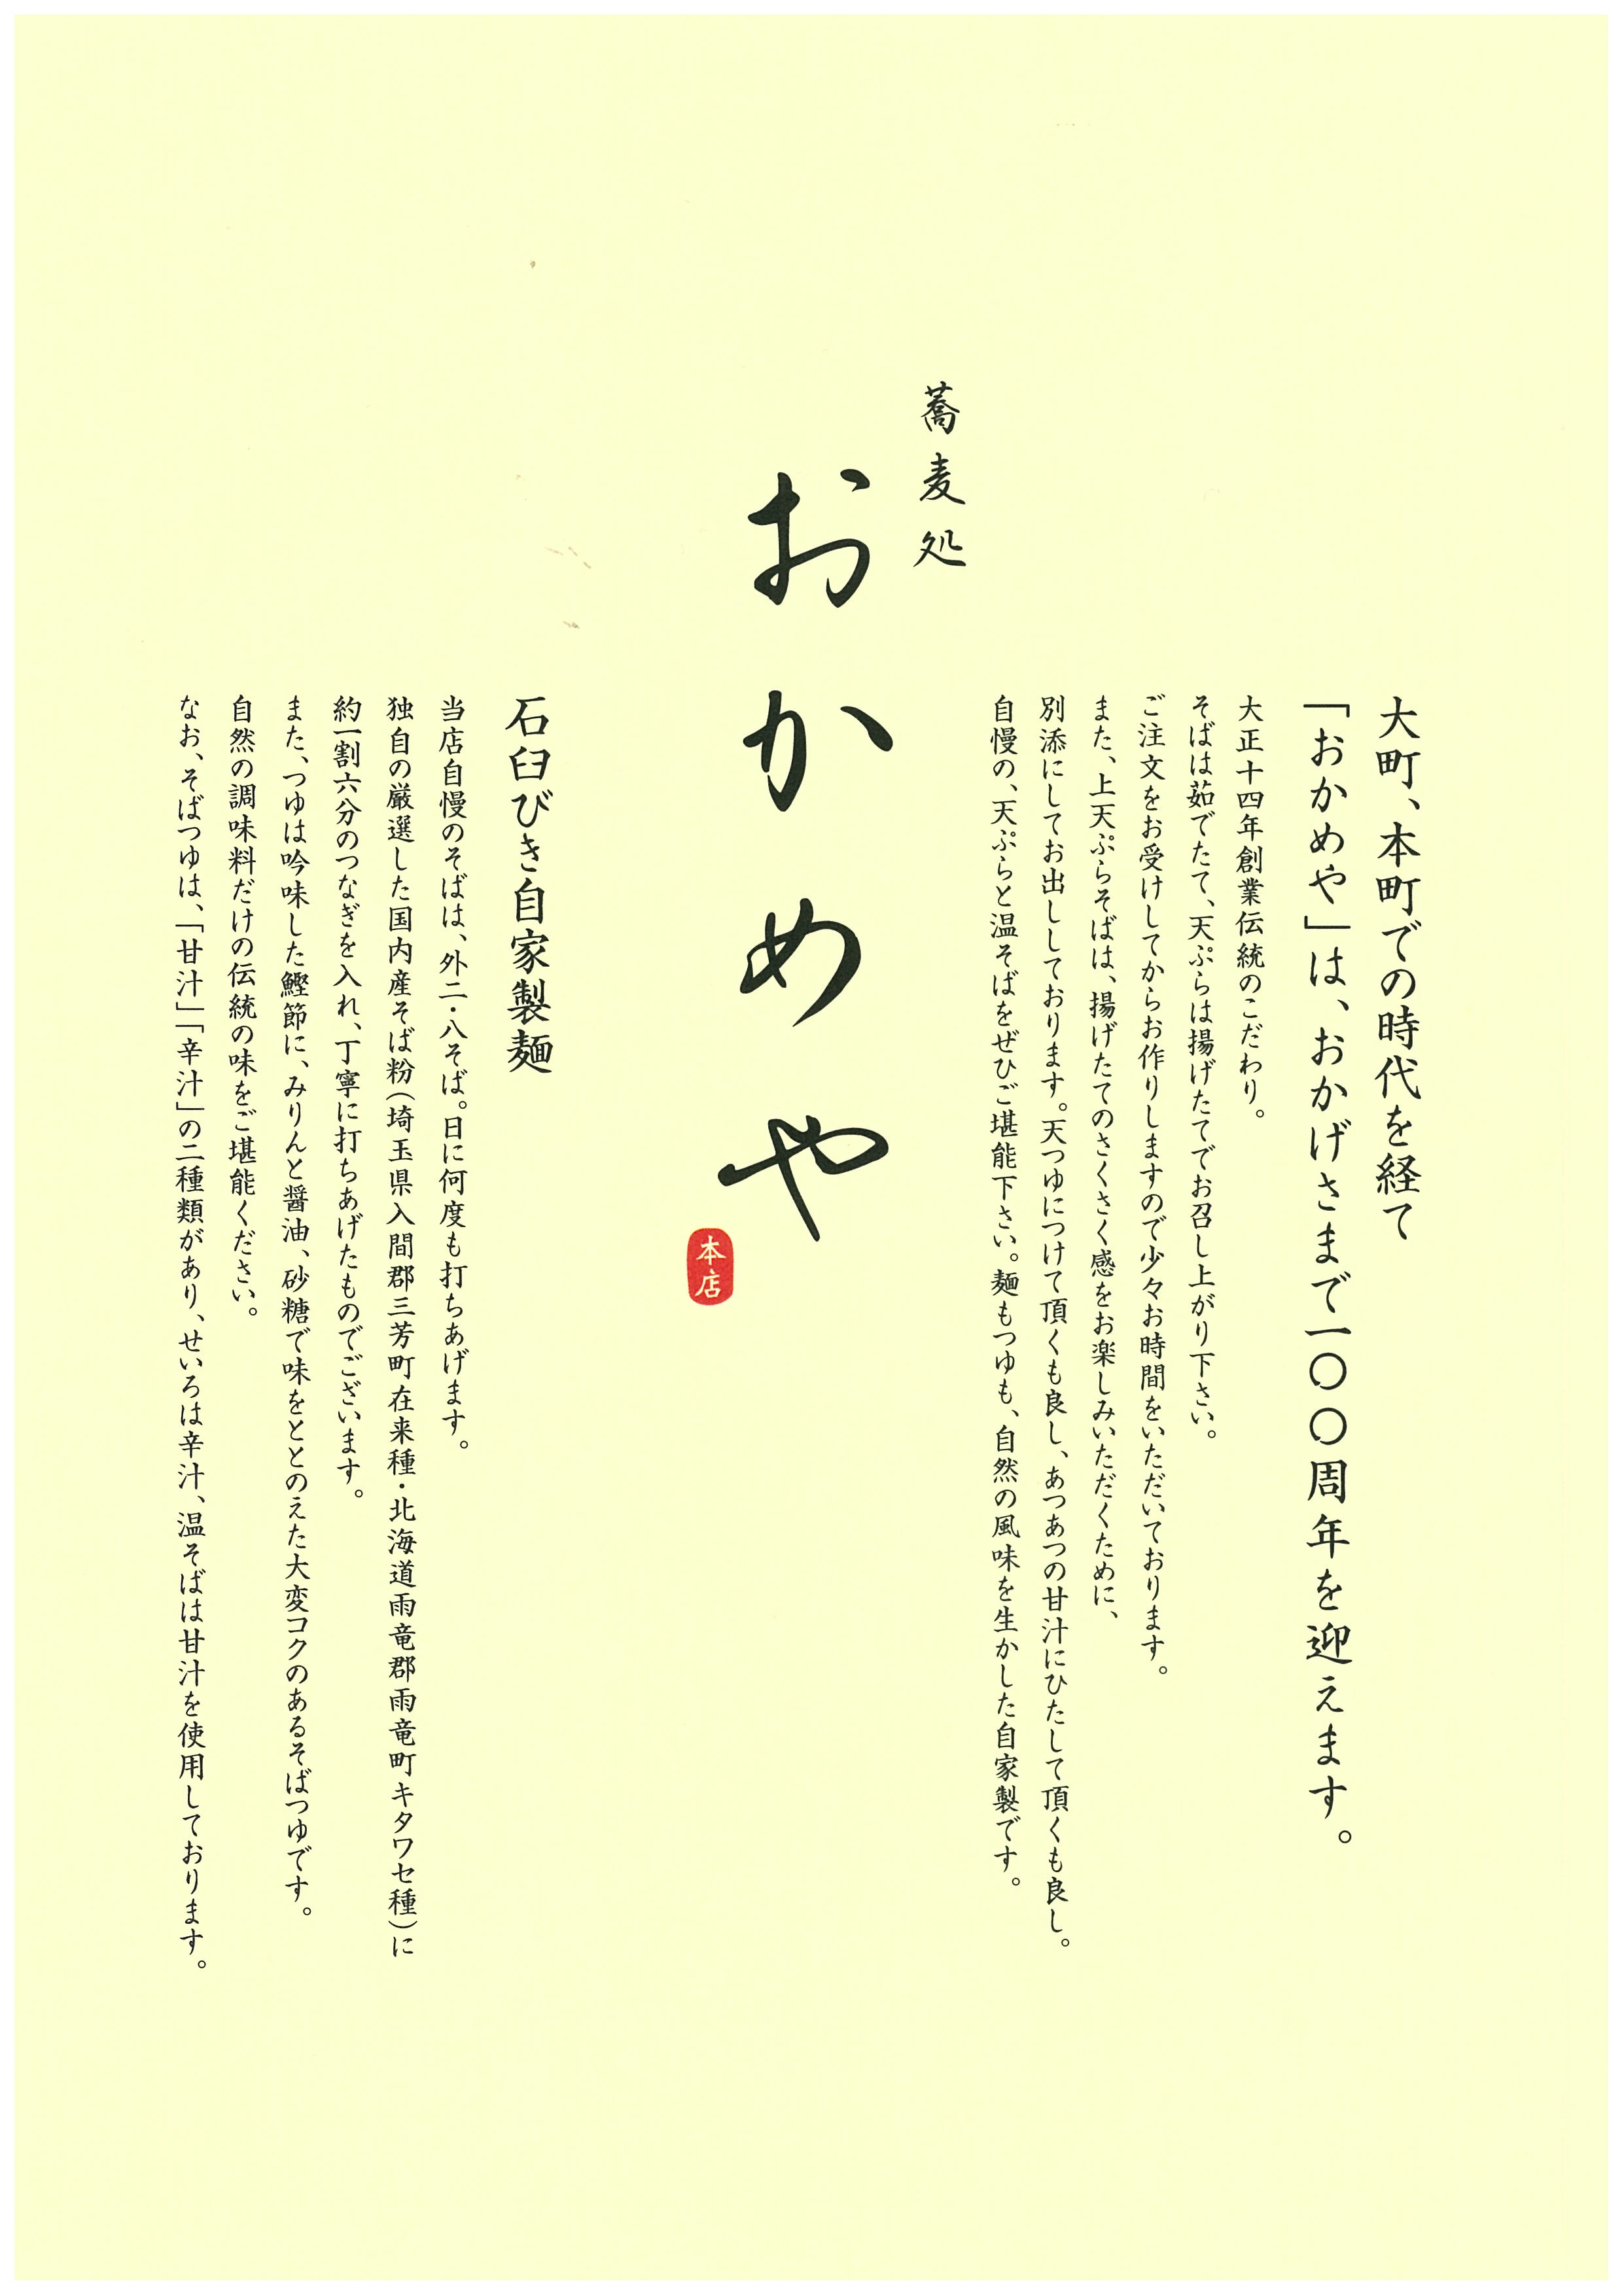 大町、本町での時代を経て
「おかめや」は、おかげさまで一〇〇周年を迎えます。
大正十四年創業伝統のこだわり。
そばは茹でたて、天ぷらは揚げたてでお召し上がり下さい。
ご注文をお受けしてからお作りしますので少々お時間をいただいております。
また、上天ぷらそばは、揚げたてのさくさく感をお楽しみいただくために、
別添にしてお出ししております。天つゆにつけて頂くも良し、あつあつの甘汁にひたして頂くも良し。
自慢の、天ぷらと温そばをぜひご堪能下さい。麺もつゆも、自然の風味を生かした自家製です。
蕎麦処
おかめや
本店
石臼びき自家製麺
当店自慢のそばは、外二・八そば。日に何度も打ちあげます。
独自の厳選した国内産そば粉(埼玉県入間郡三芳町在来種・北海道雨竜郡雨竜町キタワセ種)に
約一割六分のつなぎを入れ、丁寧に打ちあげたものでございます。
また、つゆは吟味した鰹節に、みりんと醤油、砂糖で味をととのえた大変コクのあるそばつゆです。
自然の調味料だけの伝統の味をご堪能ください。
なお、そばつゆは、「甘汁」「辛汁」の二種類があり、せいろは辛汁、温そばは甘汁を使用しております。